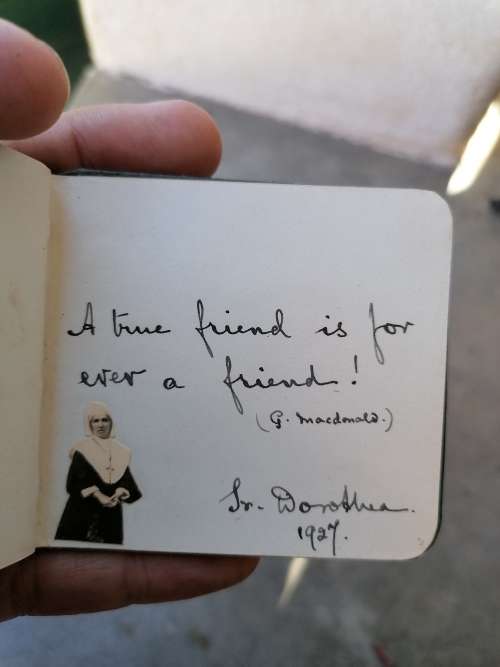 A true friend is for
ever a friend!
(G. Macdonald.)
Sr. Dorothea.
1927.